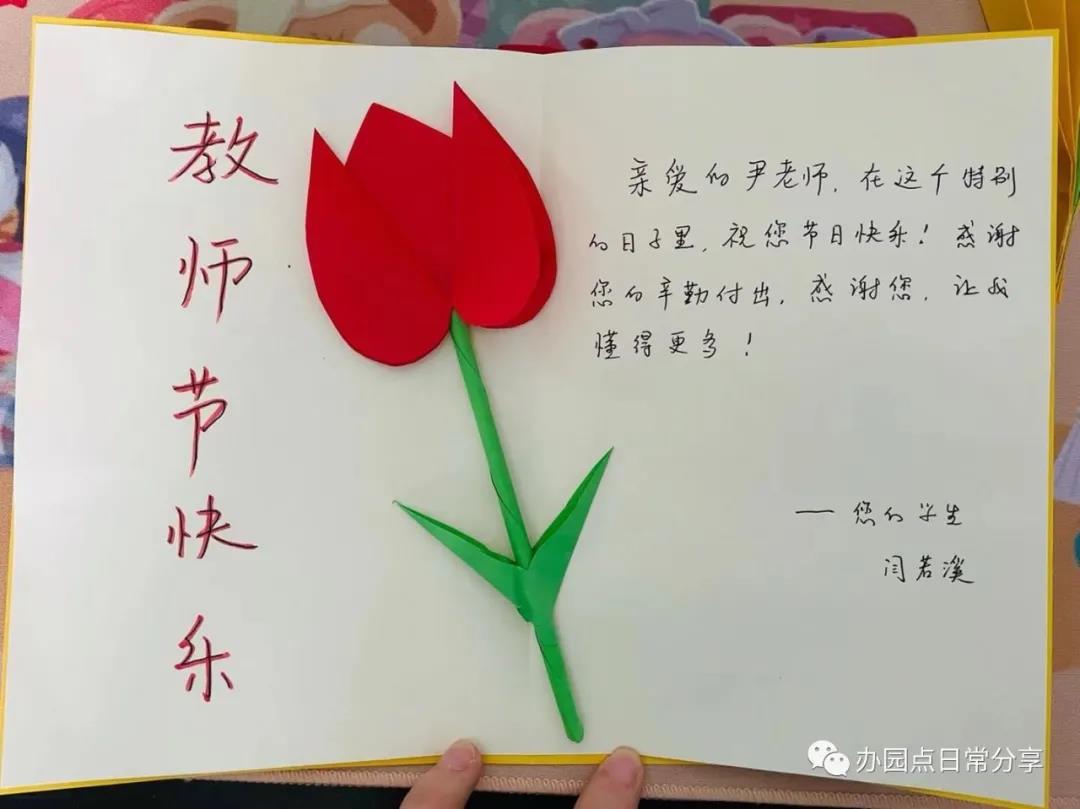 教师节快乐
亲爱的尹老师，在这个特别
的日子里，祝您节日快乐！感谢
您的辛勤付出，感谢您，让我
懂得更多！
— 您的学生
闫若溪
办园点日常分享